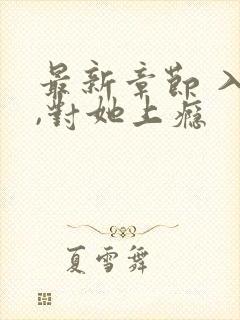 最新章節 入
,對她上瘾
夏雪舞